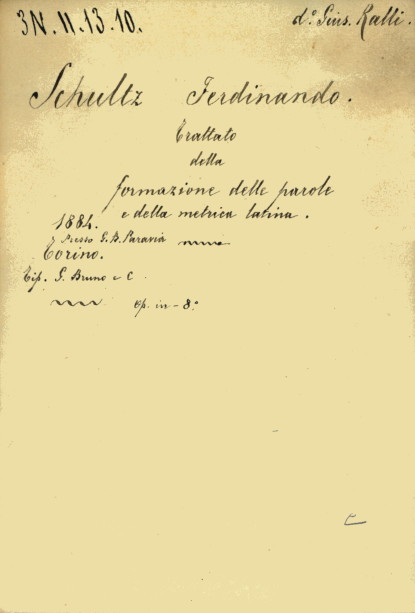 3N. II. 13. 10. d.º Gius. Kalli.
Schultz Ferdinando.
Trattato
della
formazione delle parole
e della metrica latina.
1884.
presso G. B. Paravia
Torino.
Tip. G. Bruno e C.
Op. in-8.º
C